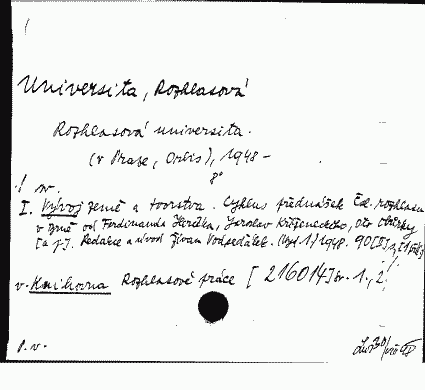 Universita, Rozhlasová
Rozhlasová universita.
(v Praze, Orbis), 1948 -
8°
I. Vývoj země a tvorstva. Cyklus přednášek Čsl. rozhlasu
v země od Ferdinanda Herčíka, Jaroslav Kříženeckého, Oto
[a j.]. Redakce a úvod Živan Vodseďálek. (Vyd. 1) 1948. 90
v. Knihovna Rozhlasové práce [216014] sv. 1., 2.
P. v.